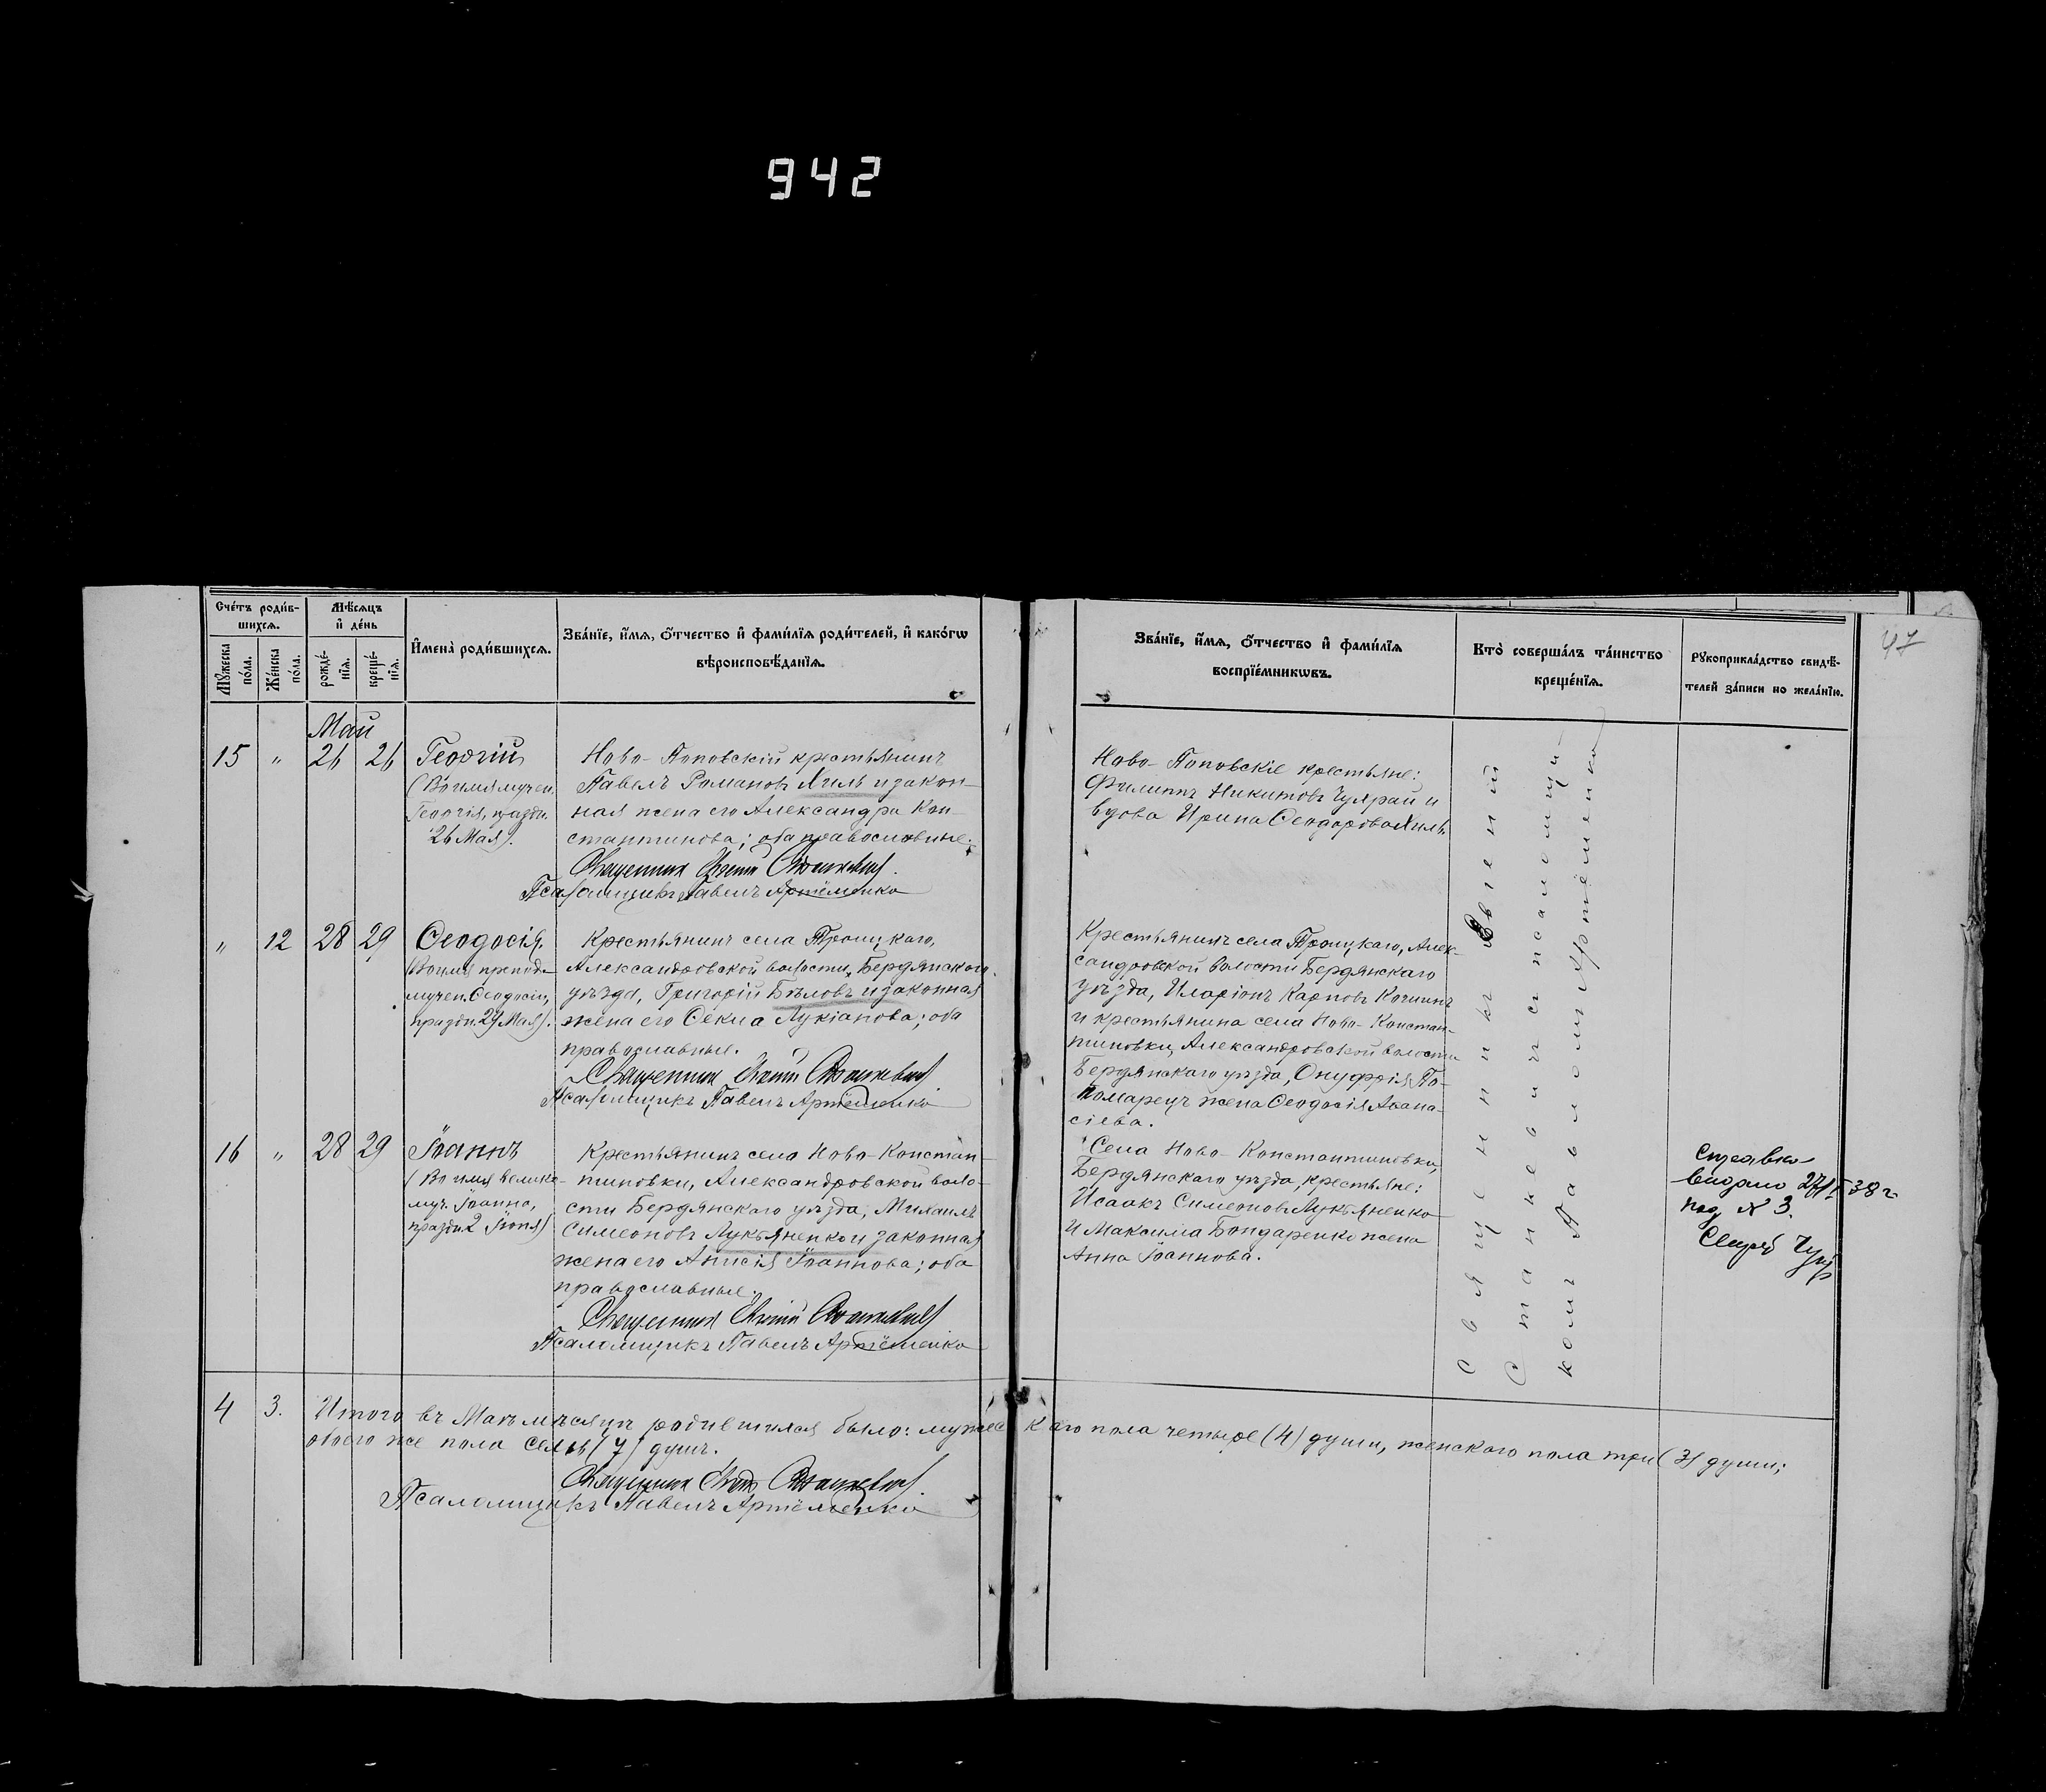 942
47
Счéтъ роди́в-
шихсѧ.
Мꙋ́жеска
по́ла.
Же́нска
по́ла.
Мѣ́сѧцъ
и҆ де́нь
рожде́-
нїѧ.
креще́-
нїѧ.
И҆мена̀ роди́вшихсѧ.
Зва́нїе, и҆́мѧ, ѻ҆́тчество и҆ фами́лїѧ роди́телей, и҆ како́гѡ
вѣроисповѣ́данїѧ.
Зва́нїе, и҆́мѧ, ѻ҆́тчество и҆ фами́лїѧ
воспрїе́мникѡвъ.
Кто̀ соверша́лъ та́инство
креще́нїѧ.
Рꙋкоприкла́дство свидѣ́-
телей за́писи по жела́нїю.
Май
15 " 26 26
Георгій
(Во имя мучен.
Георгія, праздн.
26 Мая).
Ново-Поповскій крестьянинъ
Павелъ Романовъ Хиль и закон-
ная жена его Александра Кон-
стантинова; оба православные.
Священникъ
Псаломщикъ Павелъ Артёменко
Ново-Поповскіе крестьяне:
Филиппъ Никитовъ и
вдова Ирина Ѳеодорова Хиль.
" 12 28 29
Ѳеодосія.
(Во имя препод.
мучен. Ѳеодосіи,
праздн. 29 Мая).
Крестьянинъ села Троицкаго,
Александровской волости, Бердянскаго
уѣзда, Григорій Бѣловъ и законная
жена его Ѳекла Лукіанова; оба
православные.
Священникъ
Псаломщикъ Павелъ Артёменко
Крестьянинъ села Троицкаго, Алек-
сандровской волости Бердянскаго
уѣзда, Иларіонъ Карповъ
и крестьянина села Ново-Констан-
тиновки, Александровской волости
Бердянскаго уѣзда, Онуфрія По-
номарецъ жена Ѳеодосія Аѳана-
сіева.
16 " 28 29
Іоаннъ
(Во имя велико-
муч. Іоанна,
праздн. 2 Іюня)
Крестьянинъ села Ново-Констан-
тиновки, Александровской воло-
сти Бердянскаго уѣзда, Михаилъ
Симеоновъ Лукьяненко и законная
жена его Анисія Іоаннова; оба
православные.
Священникъ
Псаломщикъ Павелъ Артёменко
Села Ново-Константиновки,
Бердянскаго уѣзда, крестьяне:
Исаакъ Симеоновъ Лукьяненко
и Максима Бондаренко жена
Анна Іоаннова.
Священникъ Евгеній
Станкевичъ съ псаломщи-
комъ Павломъ Артёменко
Справка
38 г.
под № 3.
4 3. Итого въ Маѣ мѣсяцѣ родившихся было: мужескаго пола четыре (4) души, женскаго пола три (3) души;
обоего же пола семь (7) душъ.
Священникъ
Псаломщикъ Павелъ Артёменко